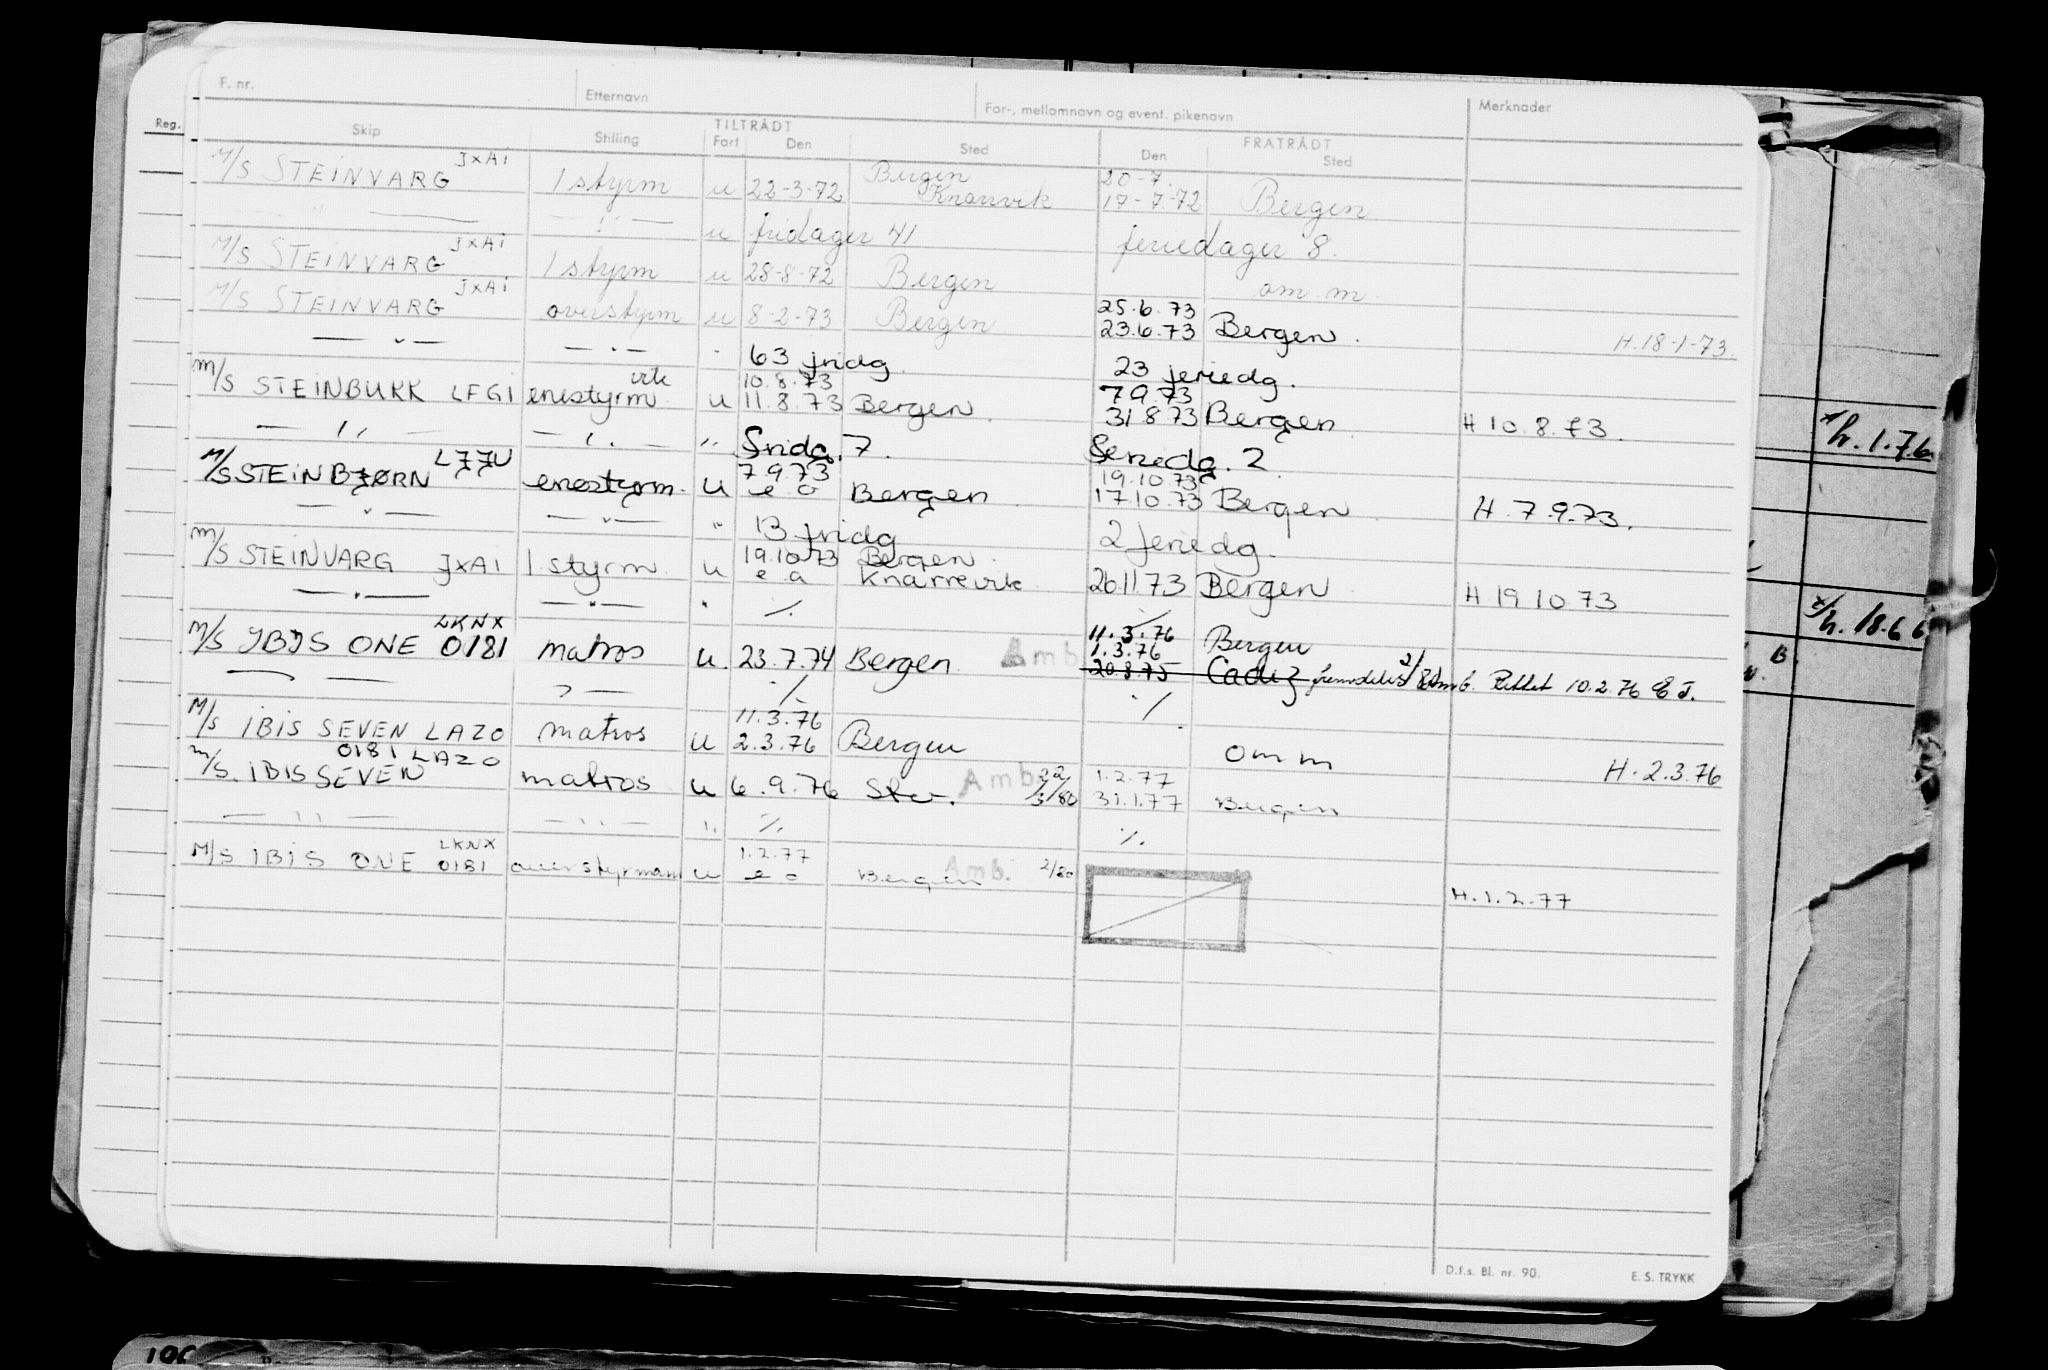 F. nr. Etternavn For-, mellomnavn og event. pikenavn Merknader
Reg.
Skip Stilling TILTRÅDT Fart Den Sted FRATRÅDT Den Sted
M/S STEINVARG JXAI 1 styrm u 22-3-72 Bergen Knarrvik 20-7. 17-7-72 Bergen
" " u fridager 41 feriedager 8.
M/S STEINVARG JXAI 1 styrm u 28-8-72 Bergen om. m.
M/S STEINVARG JXAI overstyrm u 8-2-73 Bergen 25.6.73 23.6.73 Bergen. H.18-1-73.
— " — — " — 63 fridg. 23 feriedg.
M/S STEINBUKK LFGI enestyrm vik u 10.8.73 11.8.73 Bergen. 7 9.73 31 8 73 Bergen. H 10.8.73.
— " — — " — " Fridg. 7. Feriedg. 2
M/S STEINBJØRN LJJU enestyrm. u 7 9 73 e o Bergen 19.10.73 17.10.73 Bergen. H. 7.9.73.
— " — — " — " 13 fridg 2 feriedg.
M/S STEINVARG JXAI 1 styrm. u 19.10.73 e a Bergen. Knarrevik 26.11.73 Bergen. H 19.10.73
— " — — " — " ./. ./.
M/S IBIS ONE LKNX 0181 matros u. 23.7.74 Bergen. Amb 11.3.76 1.3.76 Bergen
20.8.75 Cadiz Rettet 10.2.76
— — " — ./. ./.
M/S IBIS SEVEN LAZO matros u 11.3.76 2.3.76 Bergen om m H. 2.3.76
M/S. IBIS SEVEN 0181 LAZO matros u 6.9.76 Amb 22/3/80 1.2.77 31.1.77 Bergen
— " — — " — " ./. ./.
M/S IBIS ONE LKNX 0181 overstyrman u 1.2.77 e o Bergen Amb. 2/80 H.1.2.77
h. 1.7.6
h. 18.6 6
B.
D.f.s. Bl. nr. 90. E. S. TRYKK